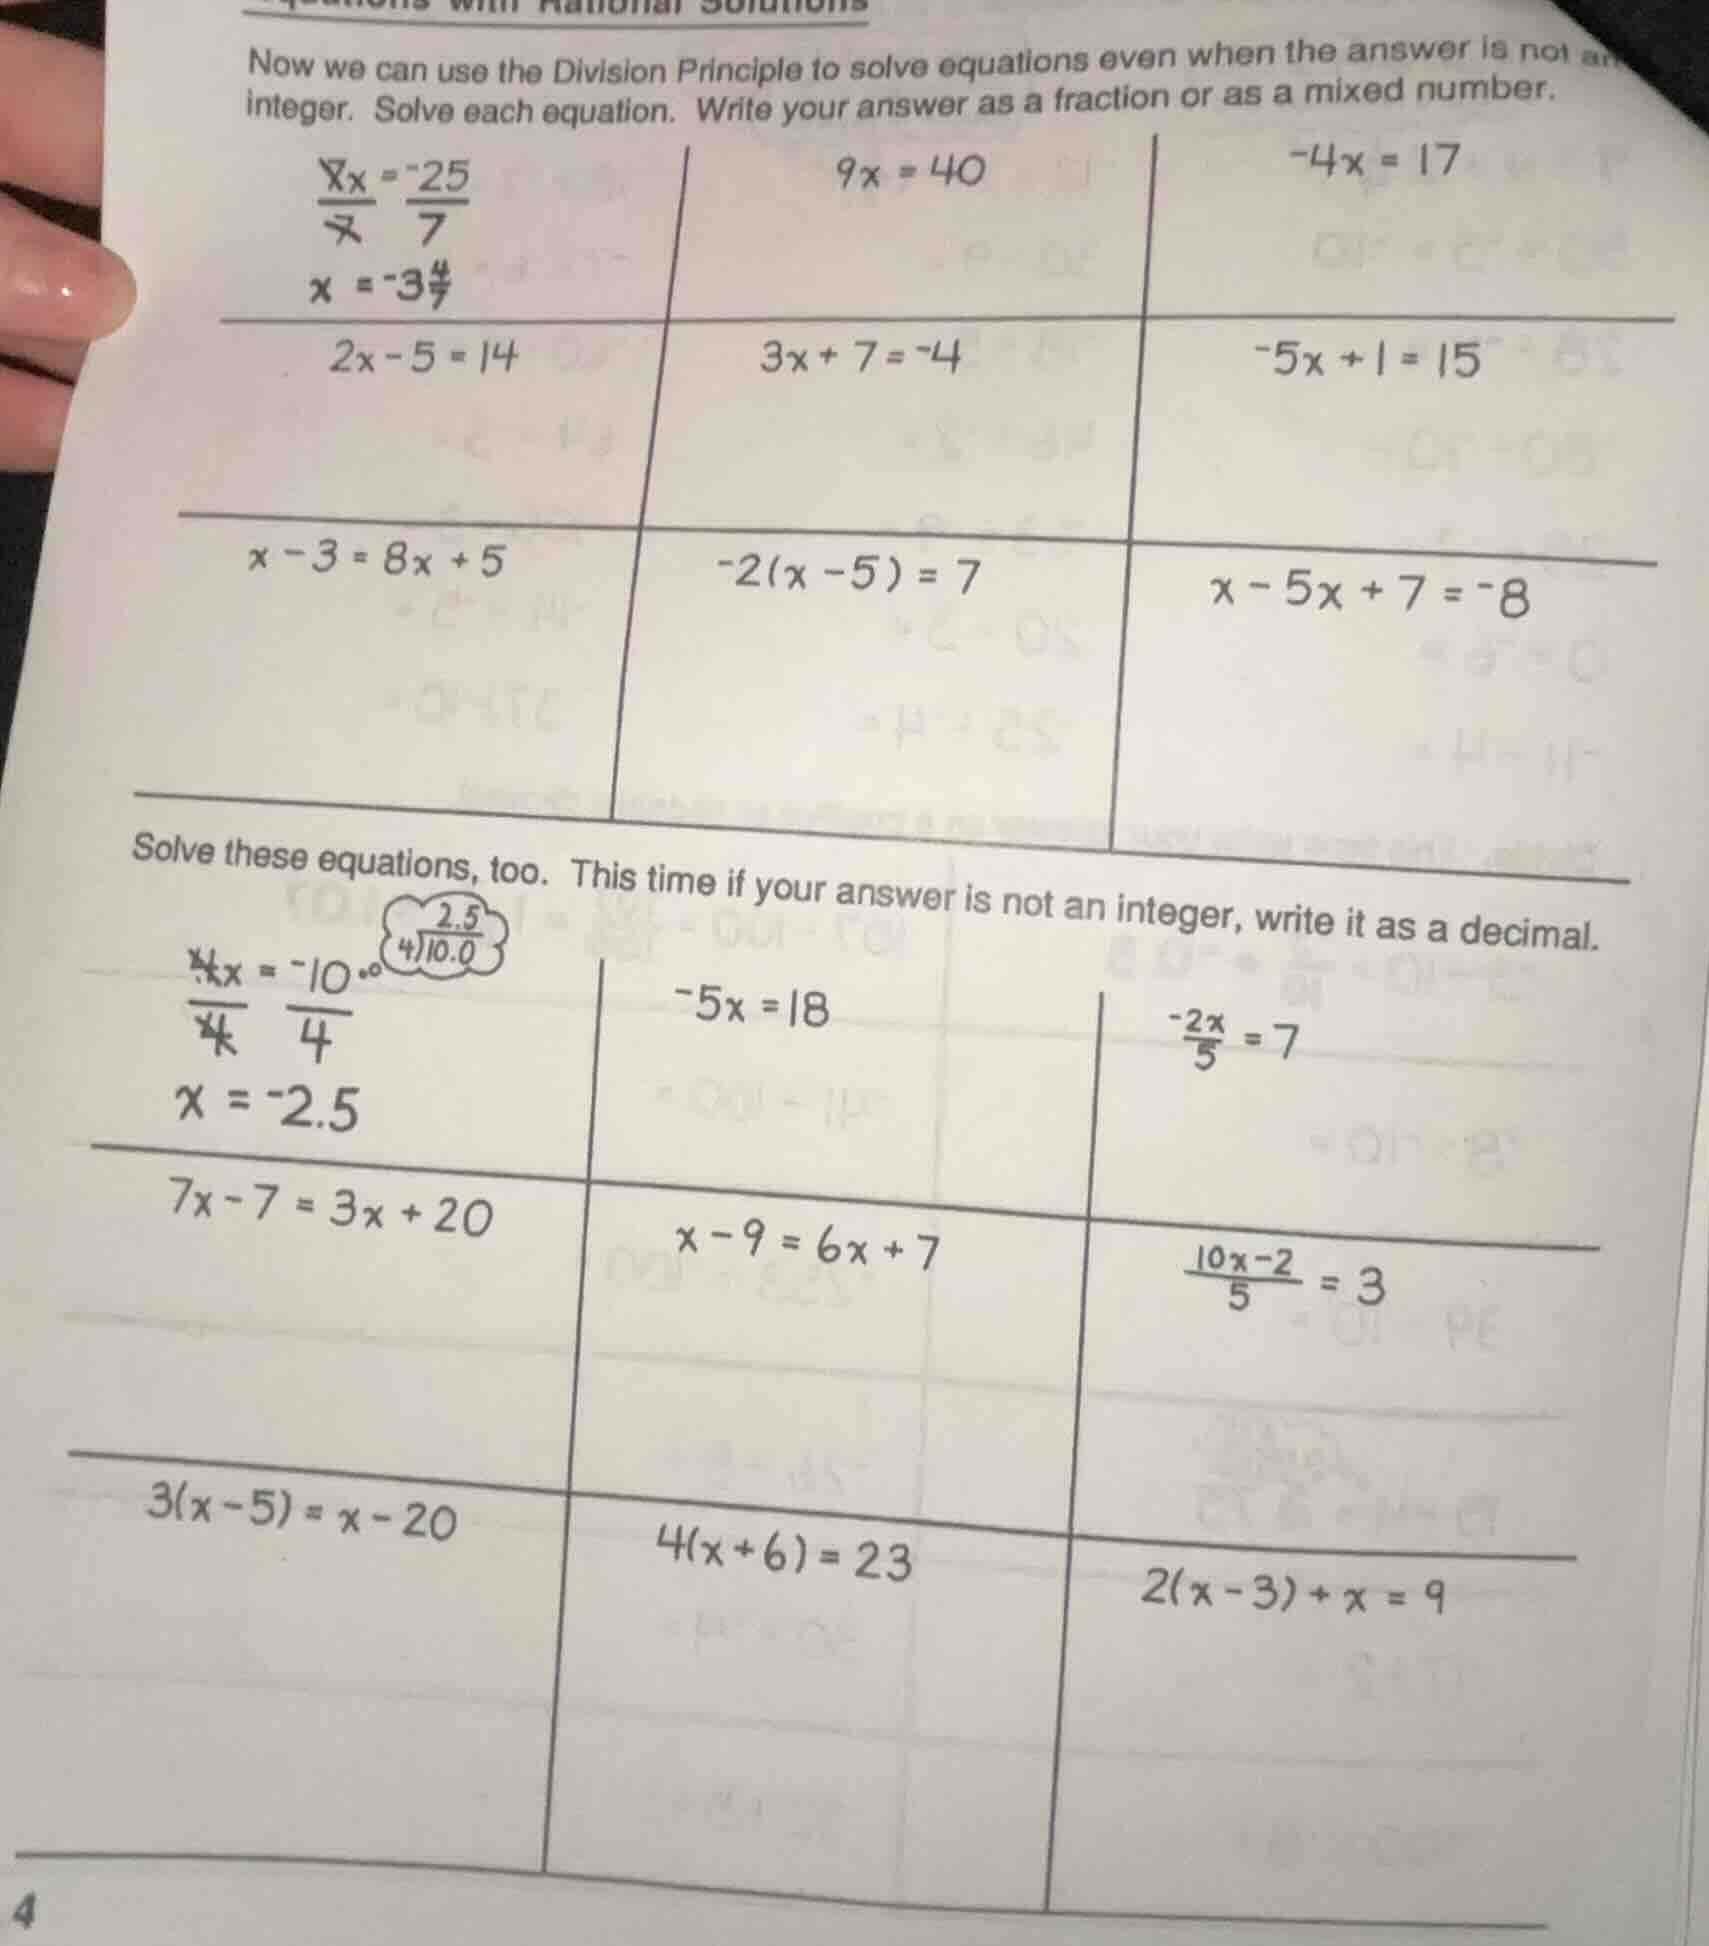 with Rational Solutions
Now we can use the Division Principle to solve equations even when the answer is not an
integer. Solve each equation. Write your answer as a fraction or as a mixed number.
7x = ⁻25
7 7
x = ⁻3 4/7
9x = 40
⁻4x = 17
2x - 5 = 14
3x + 7 = ⁻4
⁻5x + 1 = 15
x - 3 = 8x + 5
⁻2(x - 5) = 7
x - 5x + 7 = ⁻8
Solve these equations, too. This time if your answer is not an integer, write it as a decimal.
2.5
4)10.0
4x = ⁻10
4 4
x = ⁻2.5
⁻5x = 18
⁻2x/5 = 7
7x - 7 = 3x + 20
x - 9 = 6x + 7
10x - 2
5 = 3
3(x - 5) = x - 20
4(x + 6) = 23
2(x - 3) + x = 9
4